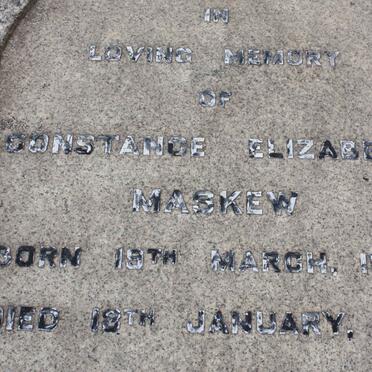 IN
LOVING MEMORY
OF
CONSTANCE ELIZABE
MASKEW
BORN 19TH MARCH, 1
DIED 18TH JANUARY,